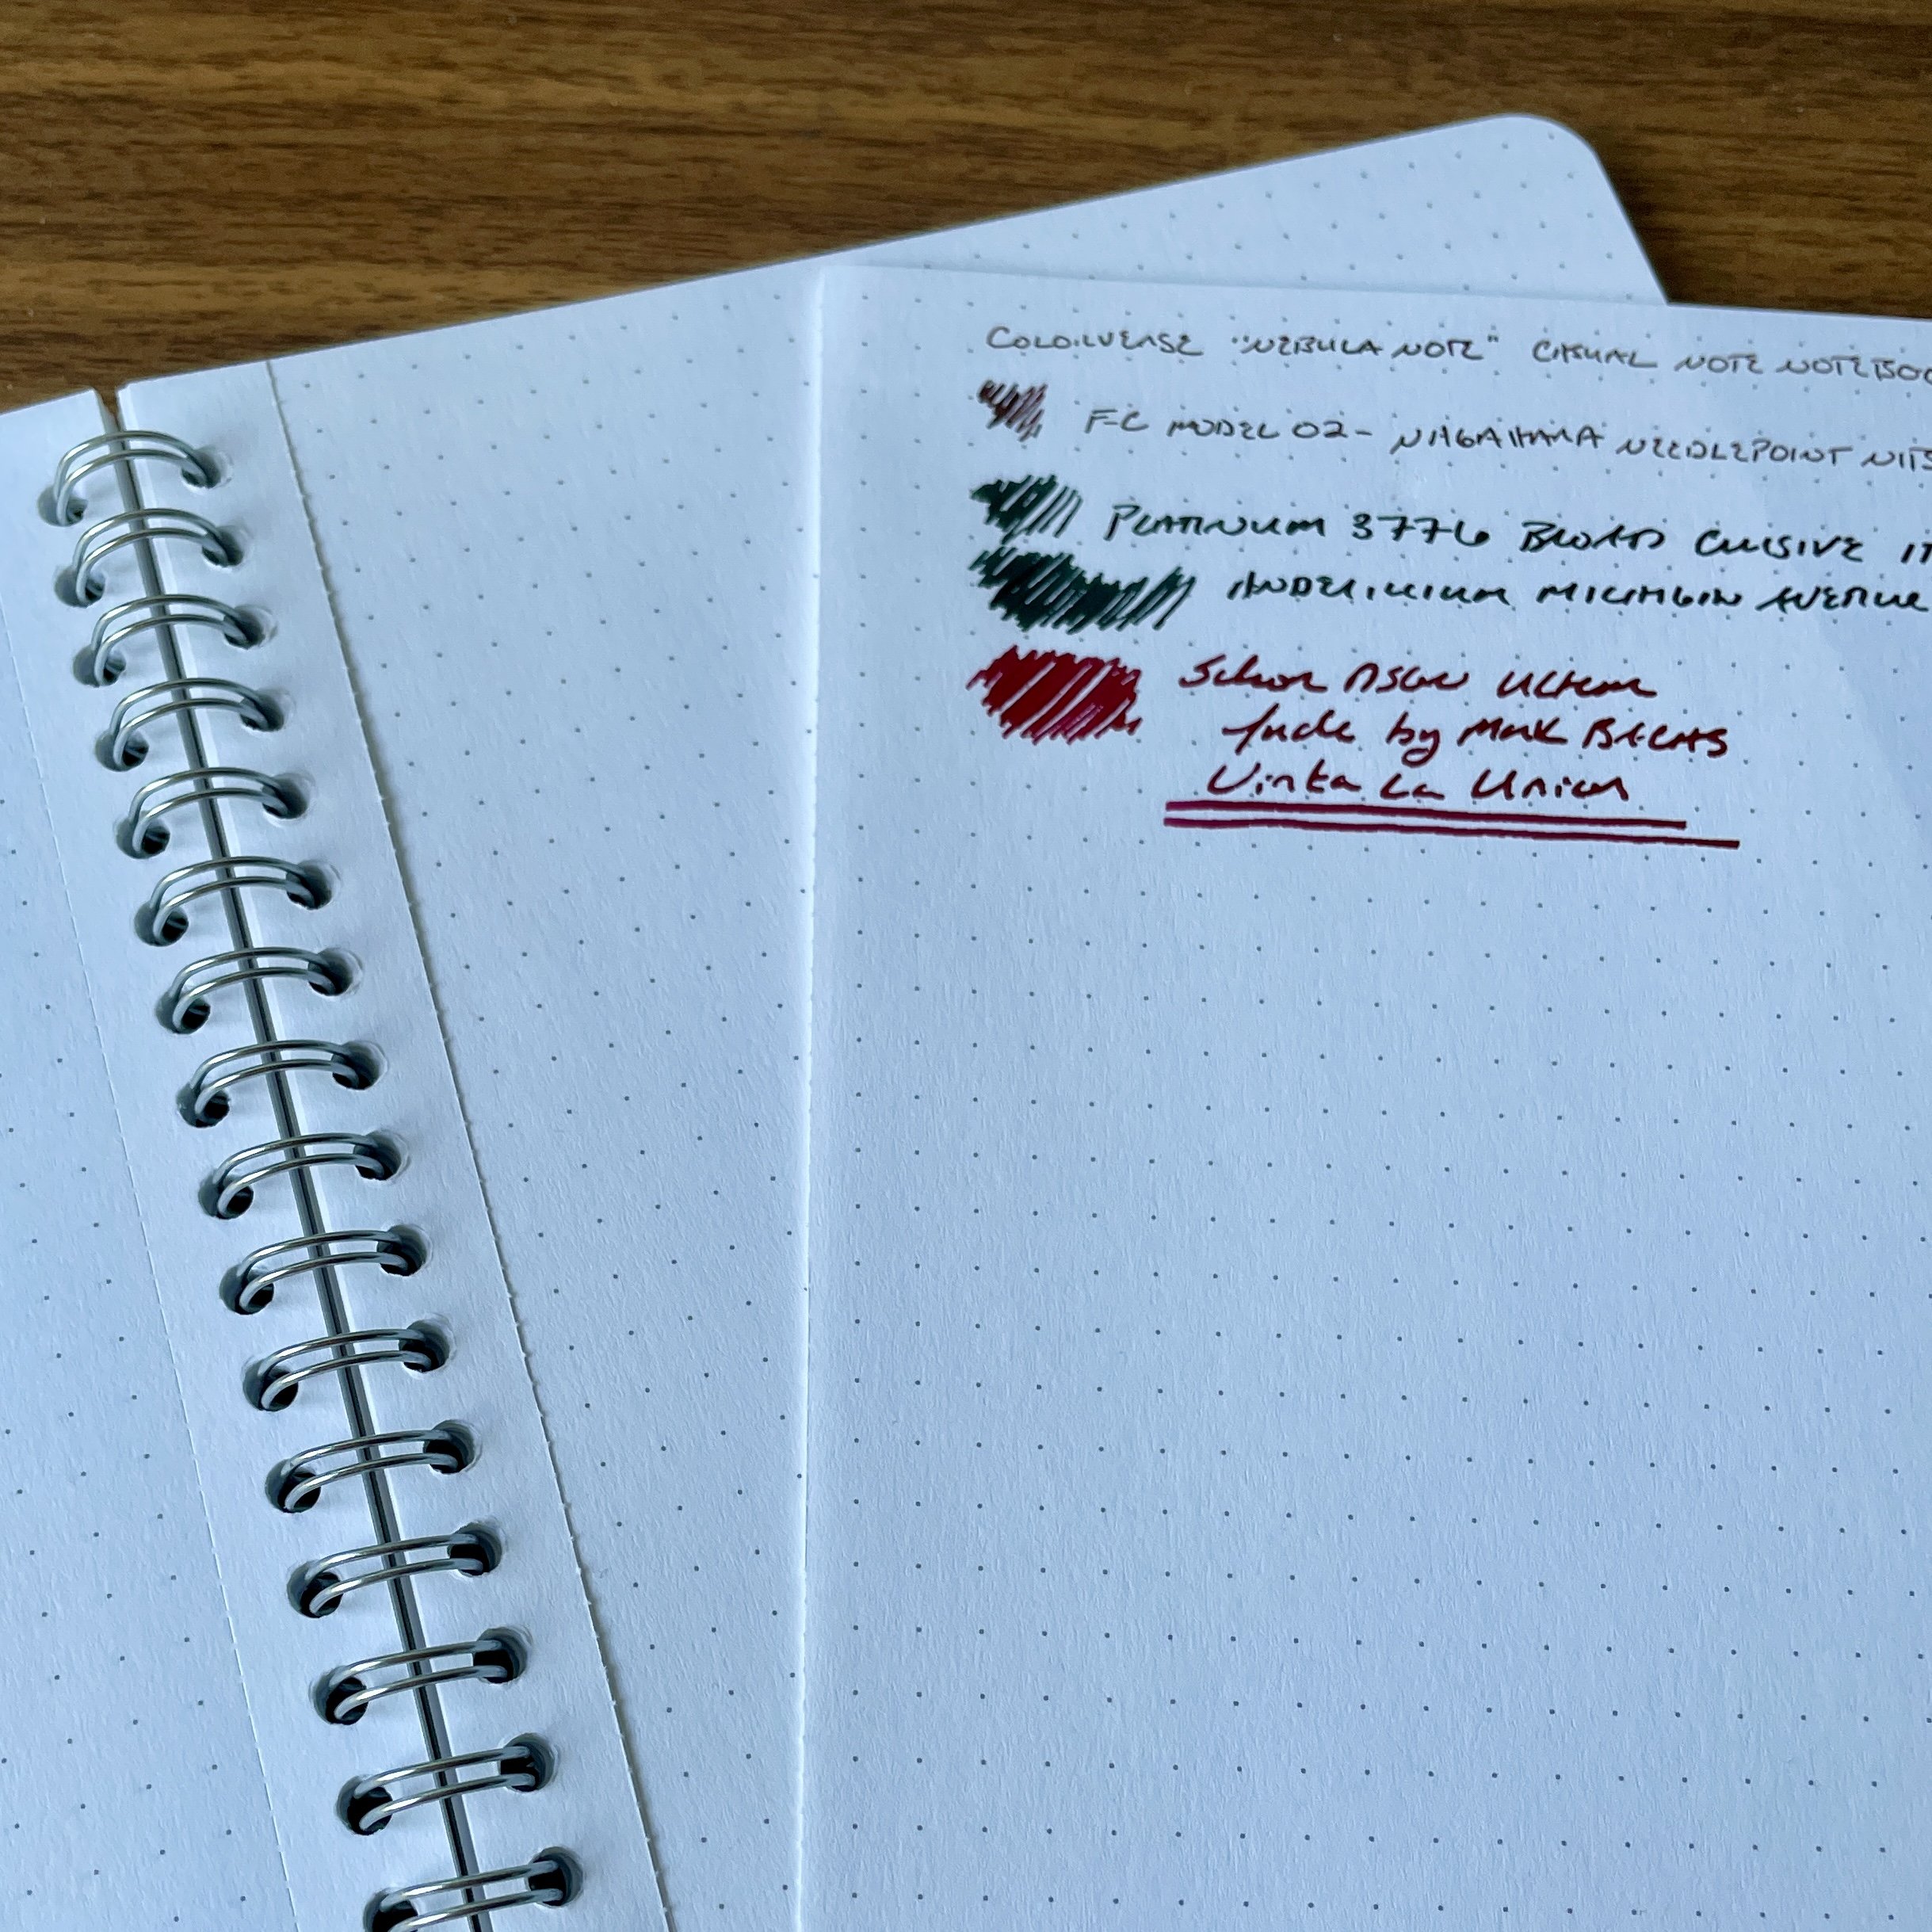 COLORVERSE "NEBULA NOTE" CASUAL NOTE
F-C MODEL 02- NAGAHARA NEEDLEPOINT
PLATINUM 3776 BROAD CURSIVE
ANDERILLIUM MICHIGAN AVENUE
Schon DSGN Ultem
fude by Mark BACAS
Vinta La Union